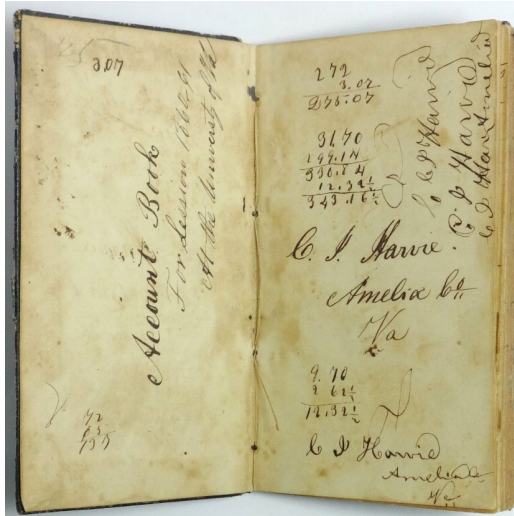 3.07
Account Book
For Session 1860-61
At the University of Va
72
272
3.07
275.07
31.70
199.14
330.84
12.32½
343.16½
C J Harvie
C J Harvie
C J Harvie Amelia
C. J. Harvie.
Amelia Co.
Va
9.70
2 62½
12.32½
C J Harvie
Amelia Co
Va